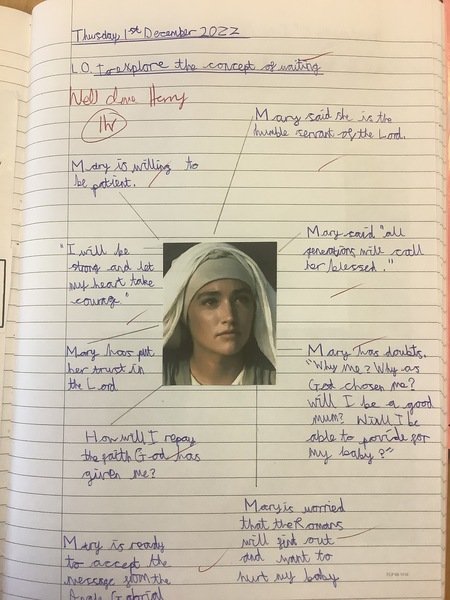 Thursday 1st December 2022
L.O. To explore the concept of waiting
Well done Henry
1hr
Mary said she is the
humble servant of the Lord.
Mary is willing to
be patient.
Mary said "all
generations will call
her blessed."
"I will be
strong and let
my heart take
courage"
Mary has put
her trust in
the Lord
Mary has doubts.
"Why me? Why as
God chosen me?
Will I be a good
mum? Will I be
able to provide for
my baby?"
How will I repay
the faith God has
given me?
Mary is worried
that the Romans
will find out
and want to
hurt my baby
Mary is ready
to accept the
message from the
Angle Gabrial